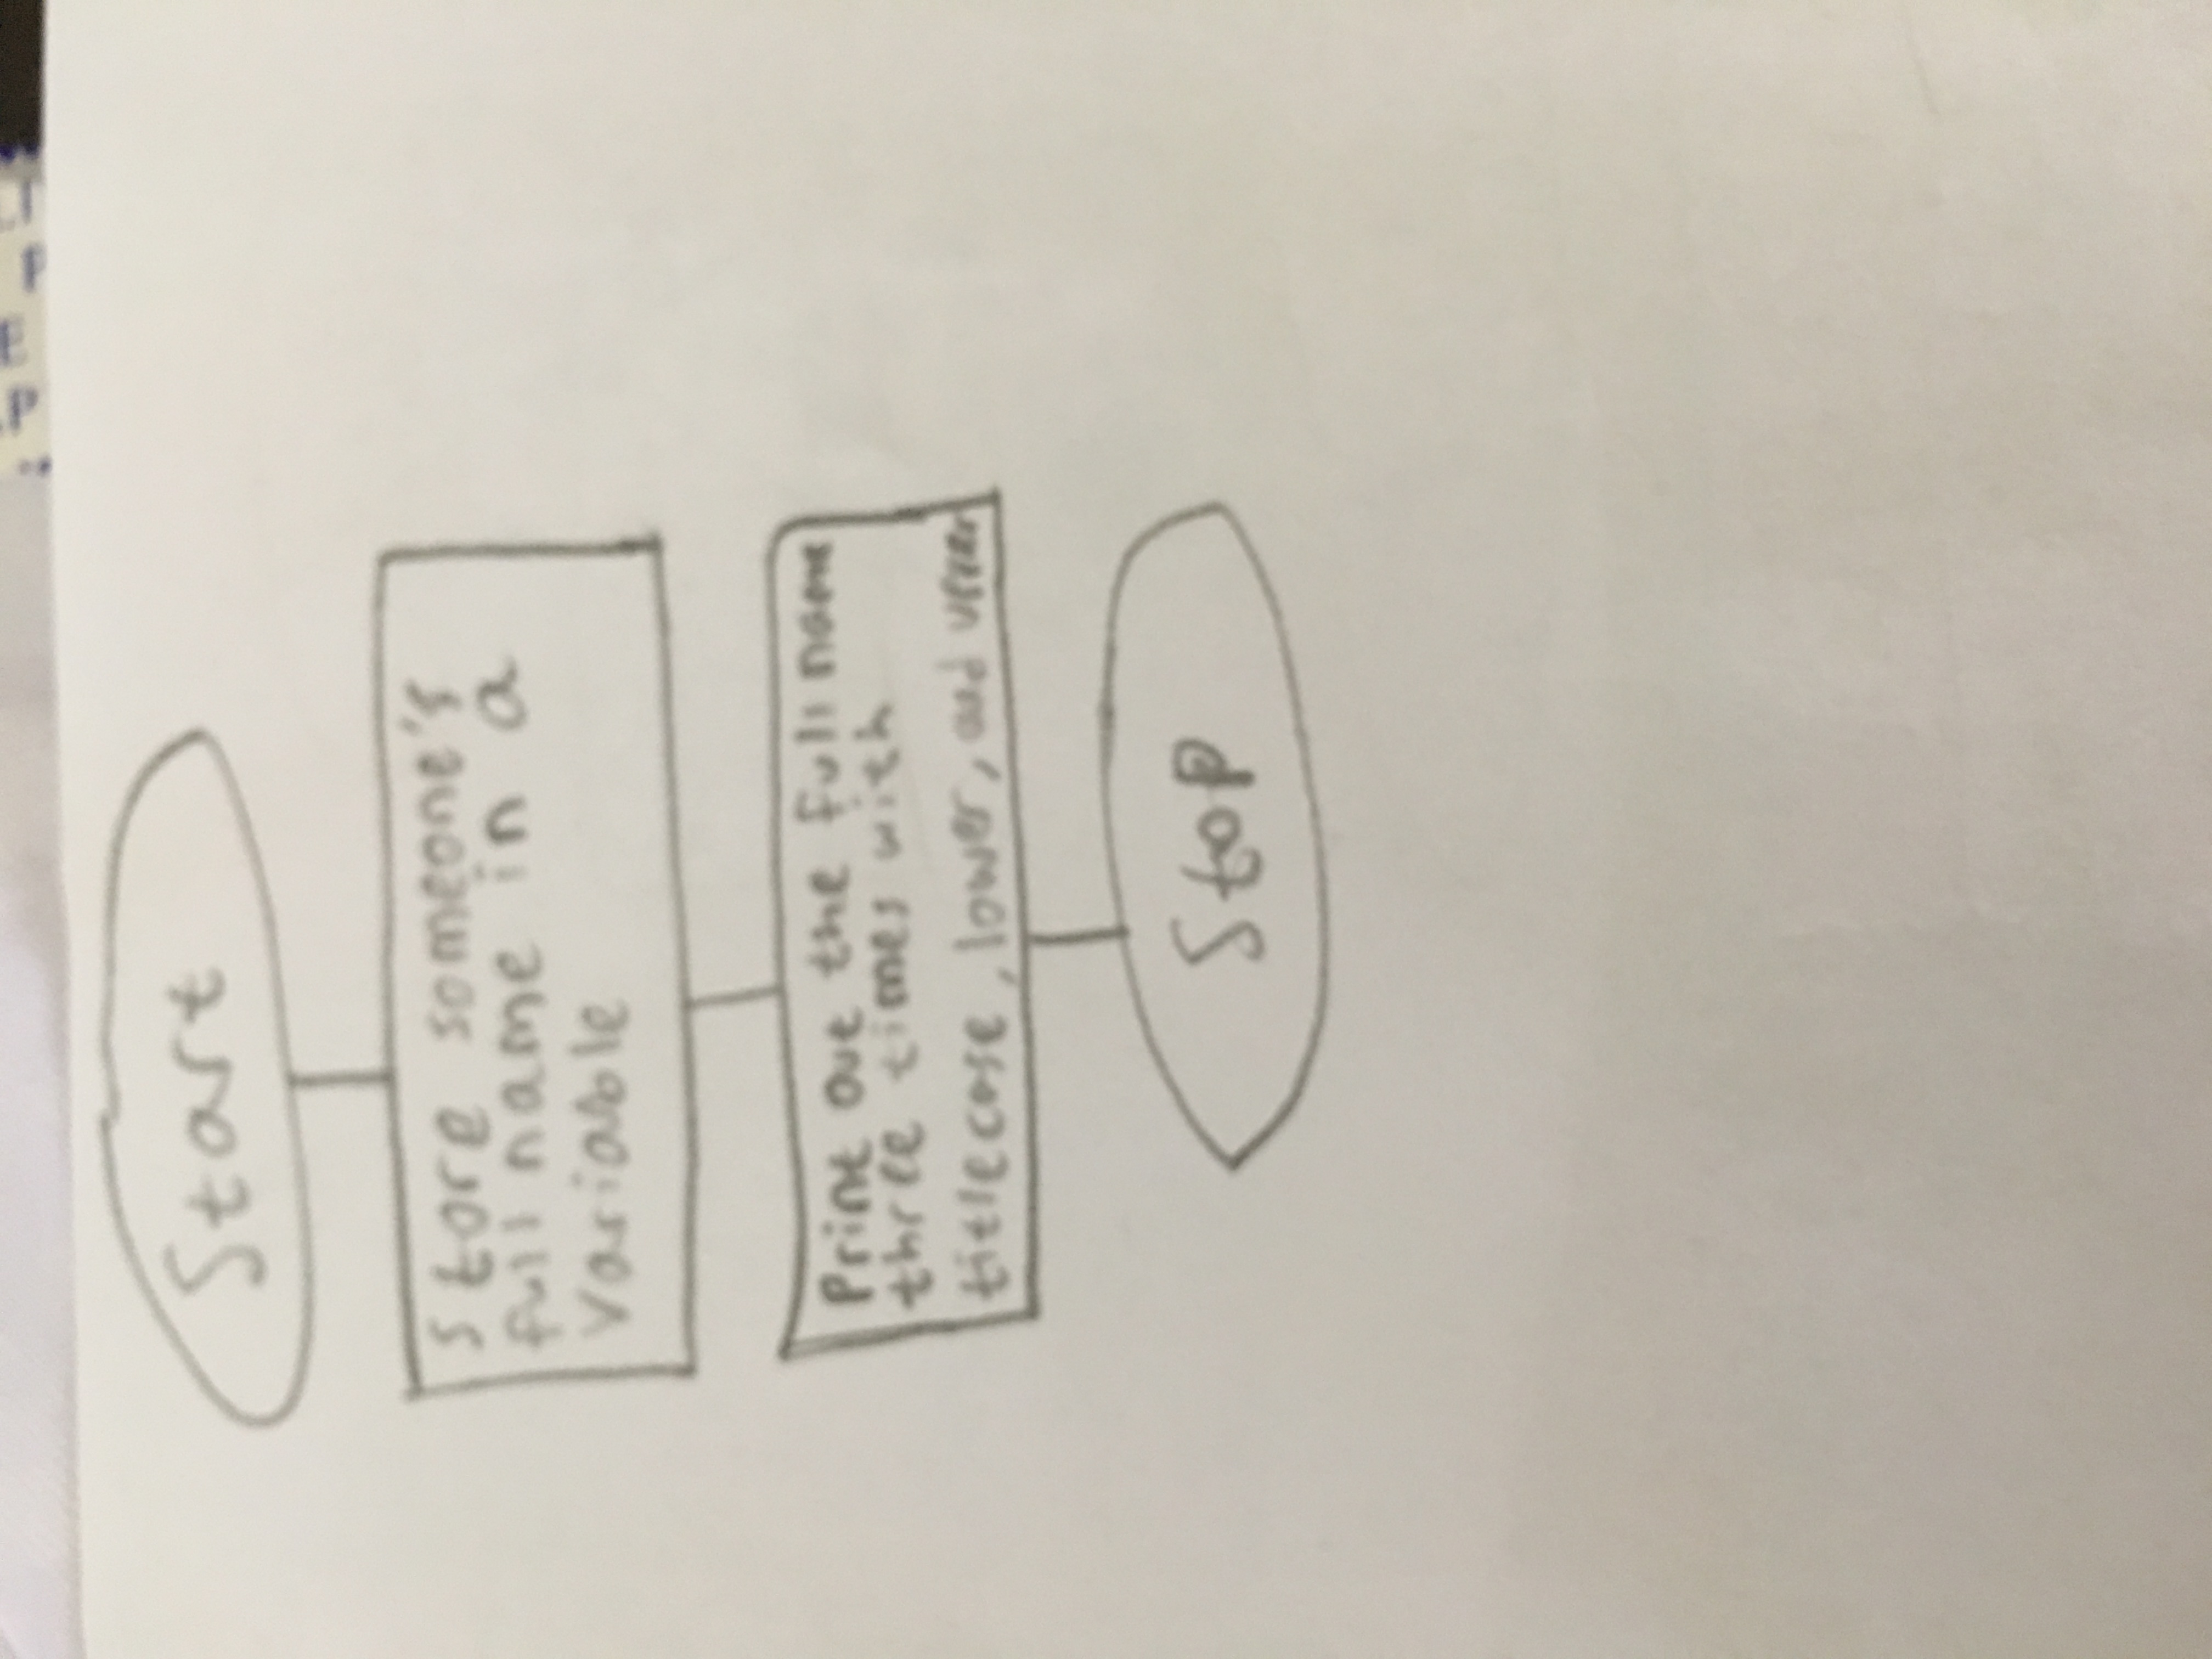 Start
Store someone's
full name in a
variable
Print out the full name
three times with
titlecase, lower, and upper
Stop